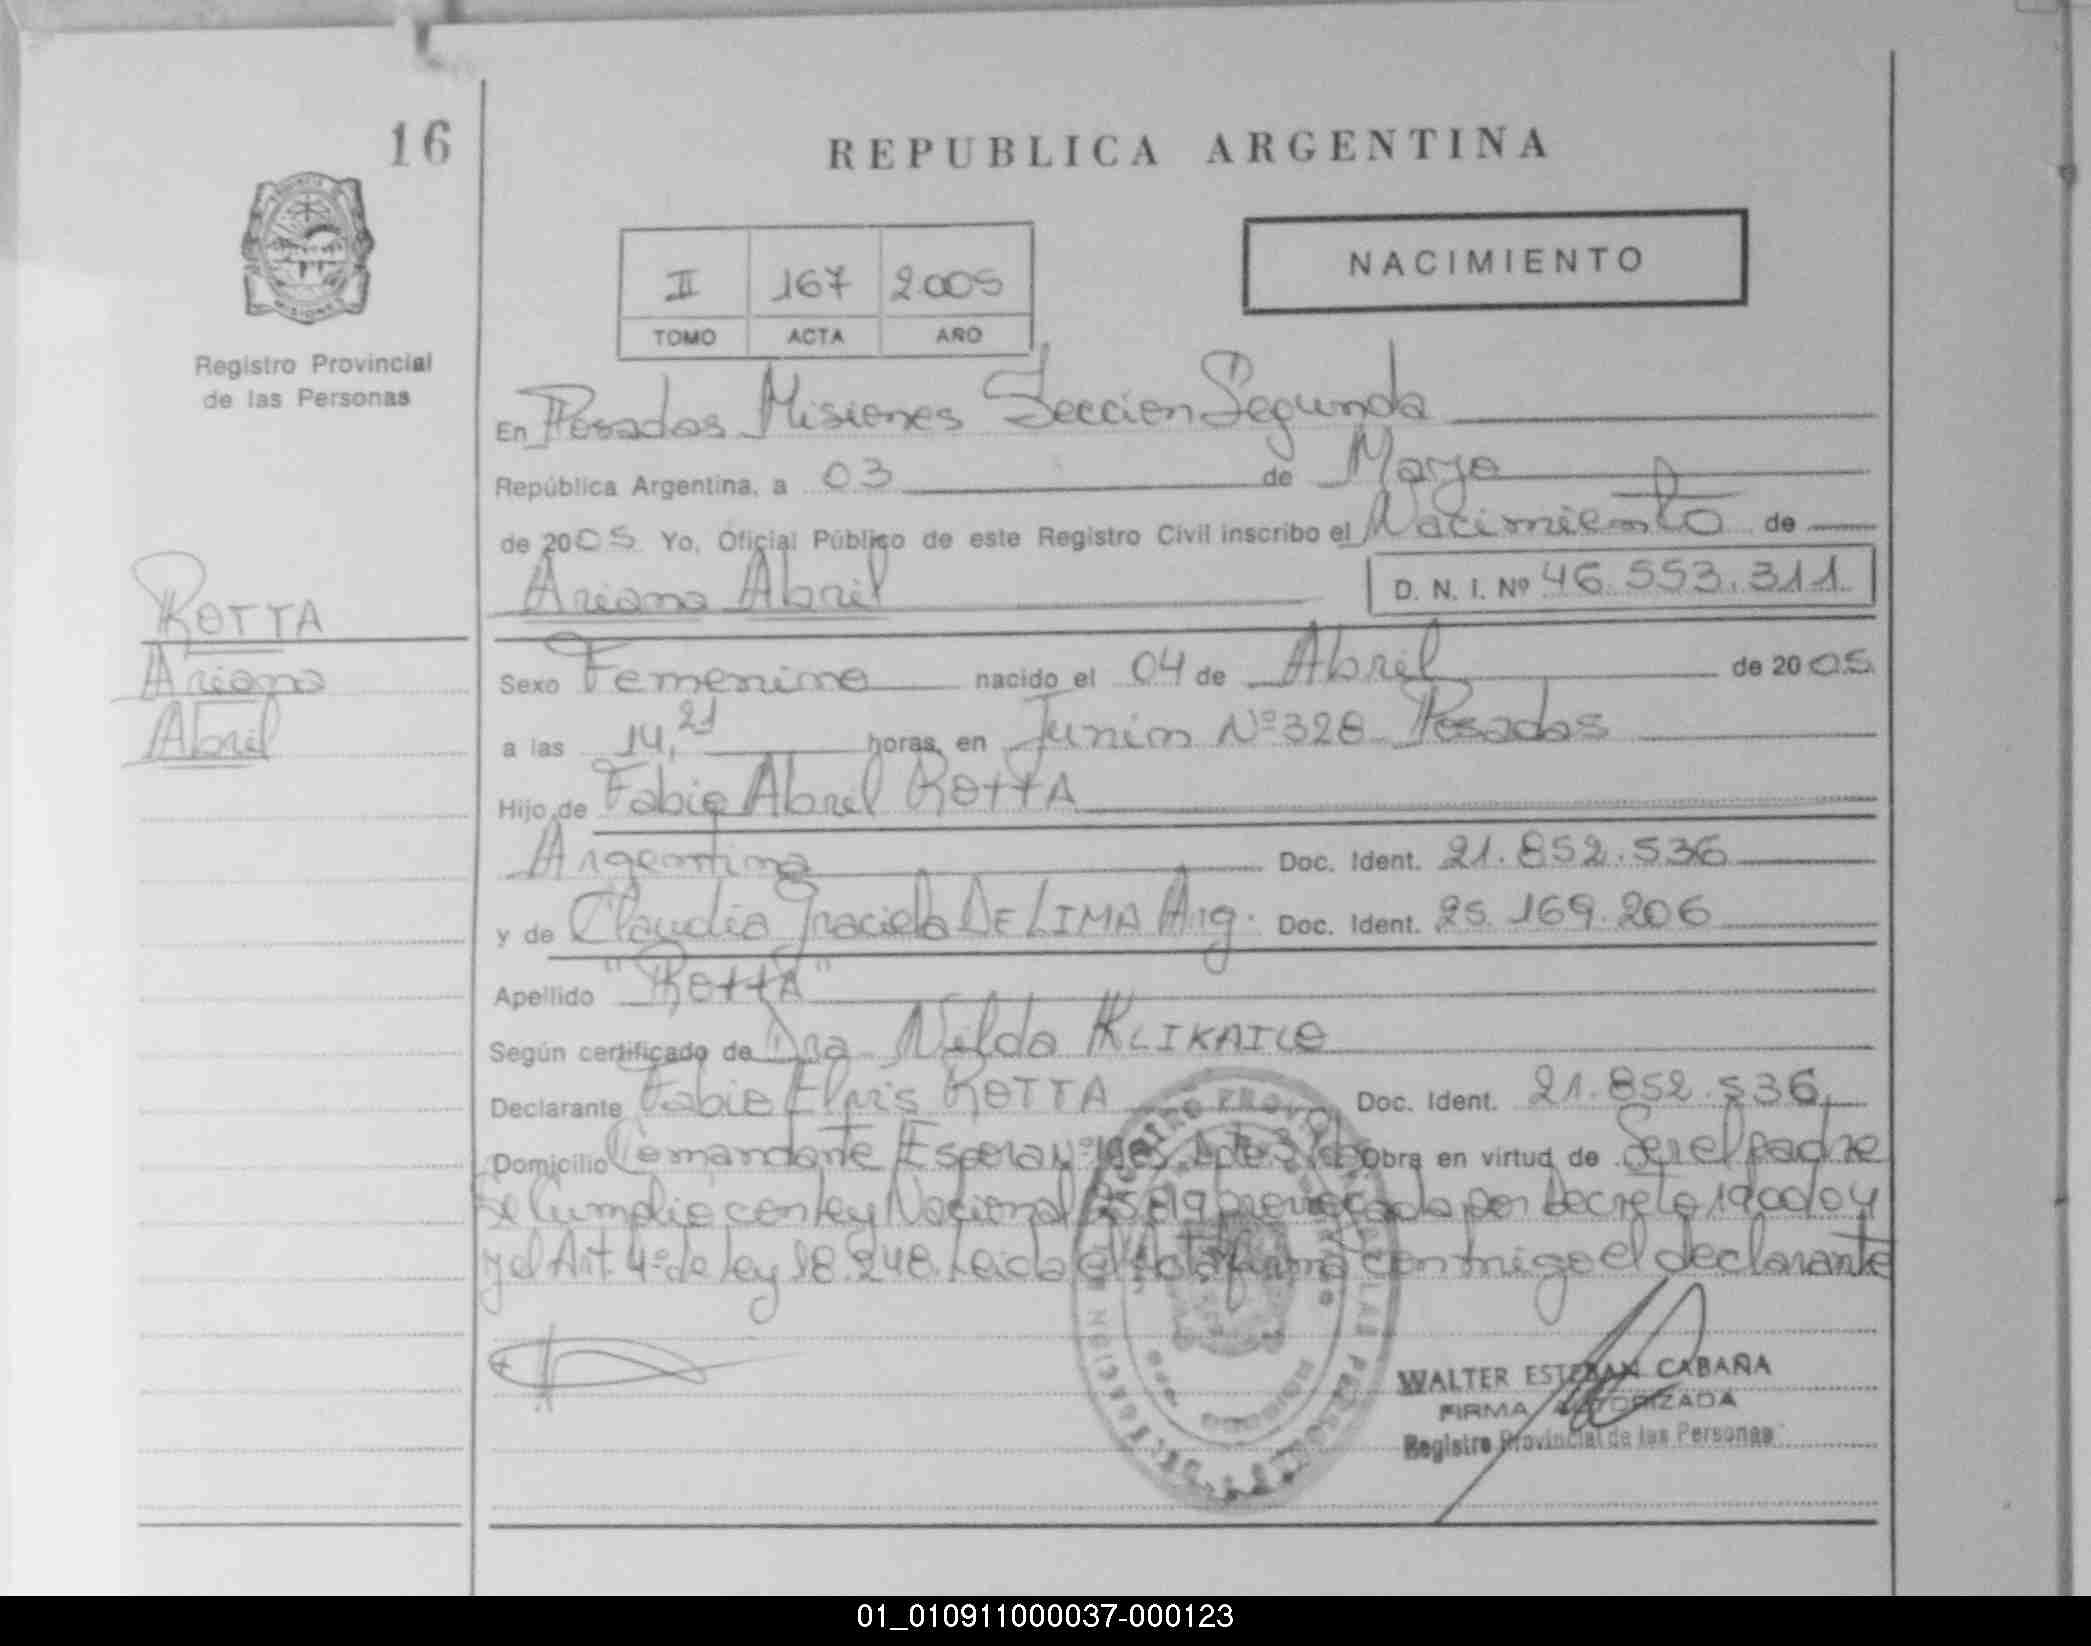 16
REPUBLICA ARGENTINA
NACIMIENTO
II 167 2005
TOMO ACTA AÑO
Registro Provincial
de las Personas
En Posadas Misiones Sección Segunda
República Argentina, a 03 de Mayo
de 2005 Yo, Oficial Público de este Registro Civil inscribo el Nacimiento de
Ariana Abril D. N. I. Nº 46.553.311
ROTTA
Ariana
Abril
Sexo Femenino nacido el 04 de Abril de 2005
a las 14,21 horas, en Junin Nº 328 Posadas
Hijo de Fabio Abril ROTTA
Argentina Doc. Ident. 21.852.536
y de Claudia Graciela DE LIMA Arg. Doc. Ident. 25.169.206
Apellido "ROTTA"
Según certificado de Dra Nilda
Declarante Fabio Elvis ROTTA Doc. Ident. 21.852.536
Domicilio Comandante Espora Obra en virtud de Ser el padre
Se Cumplio con ley Nacional por Decreto 1900/04
y el Art. 4º de ley 18.248. Leida el Acta firma conmigo el declarante
WALTER ESTEBAN CABAÑA
FIRMA AUTORIZADA
Registro Provincial de las Personas
01_010911000037-000123